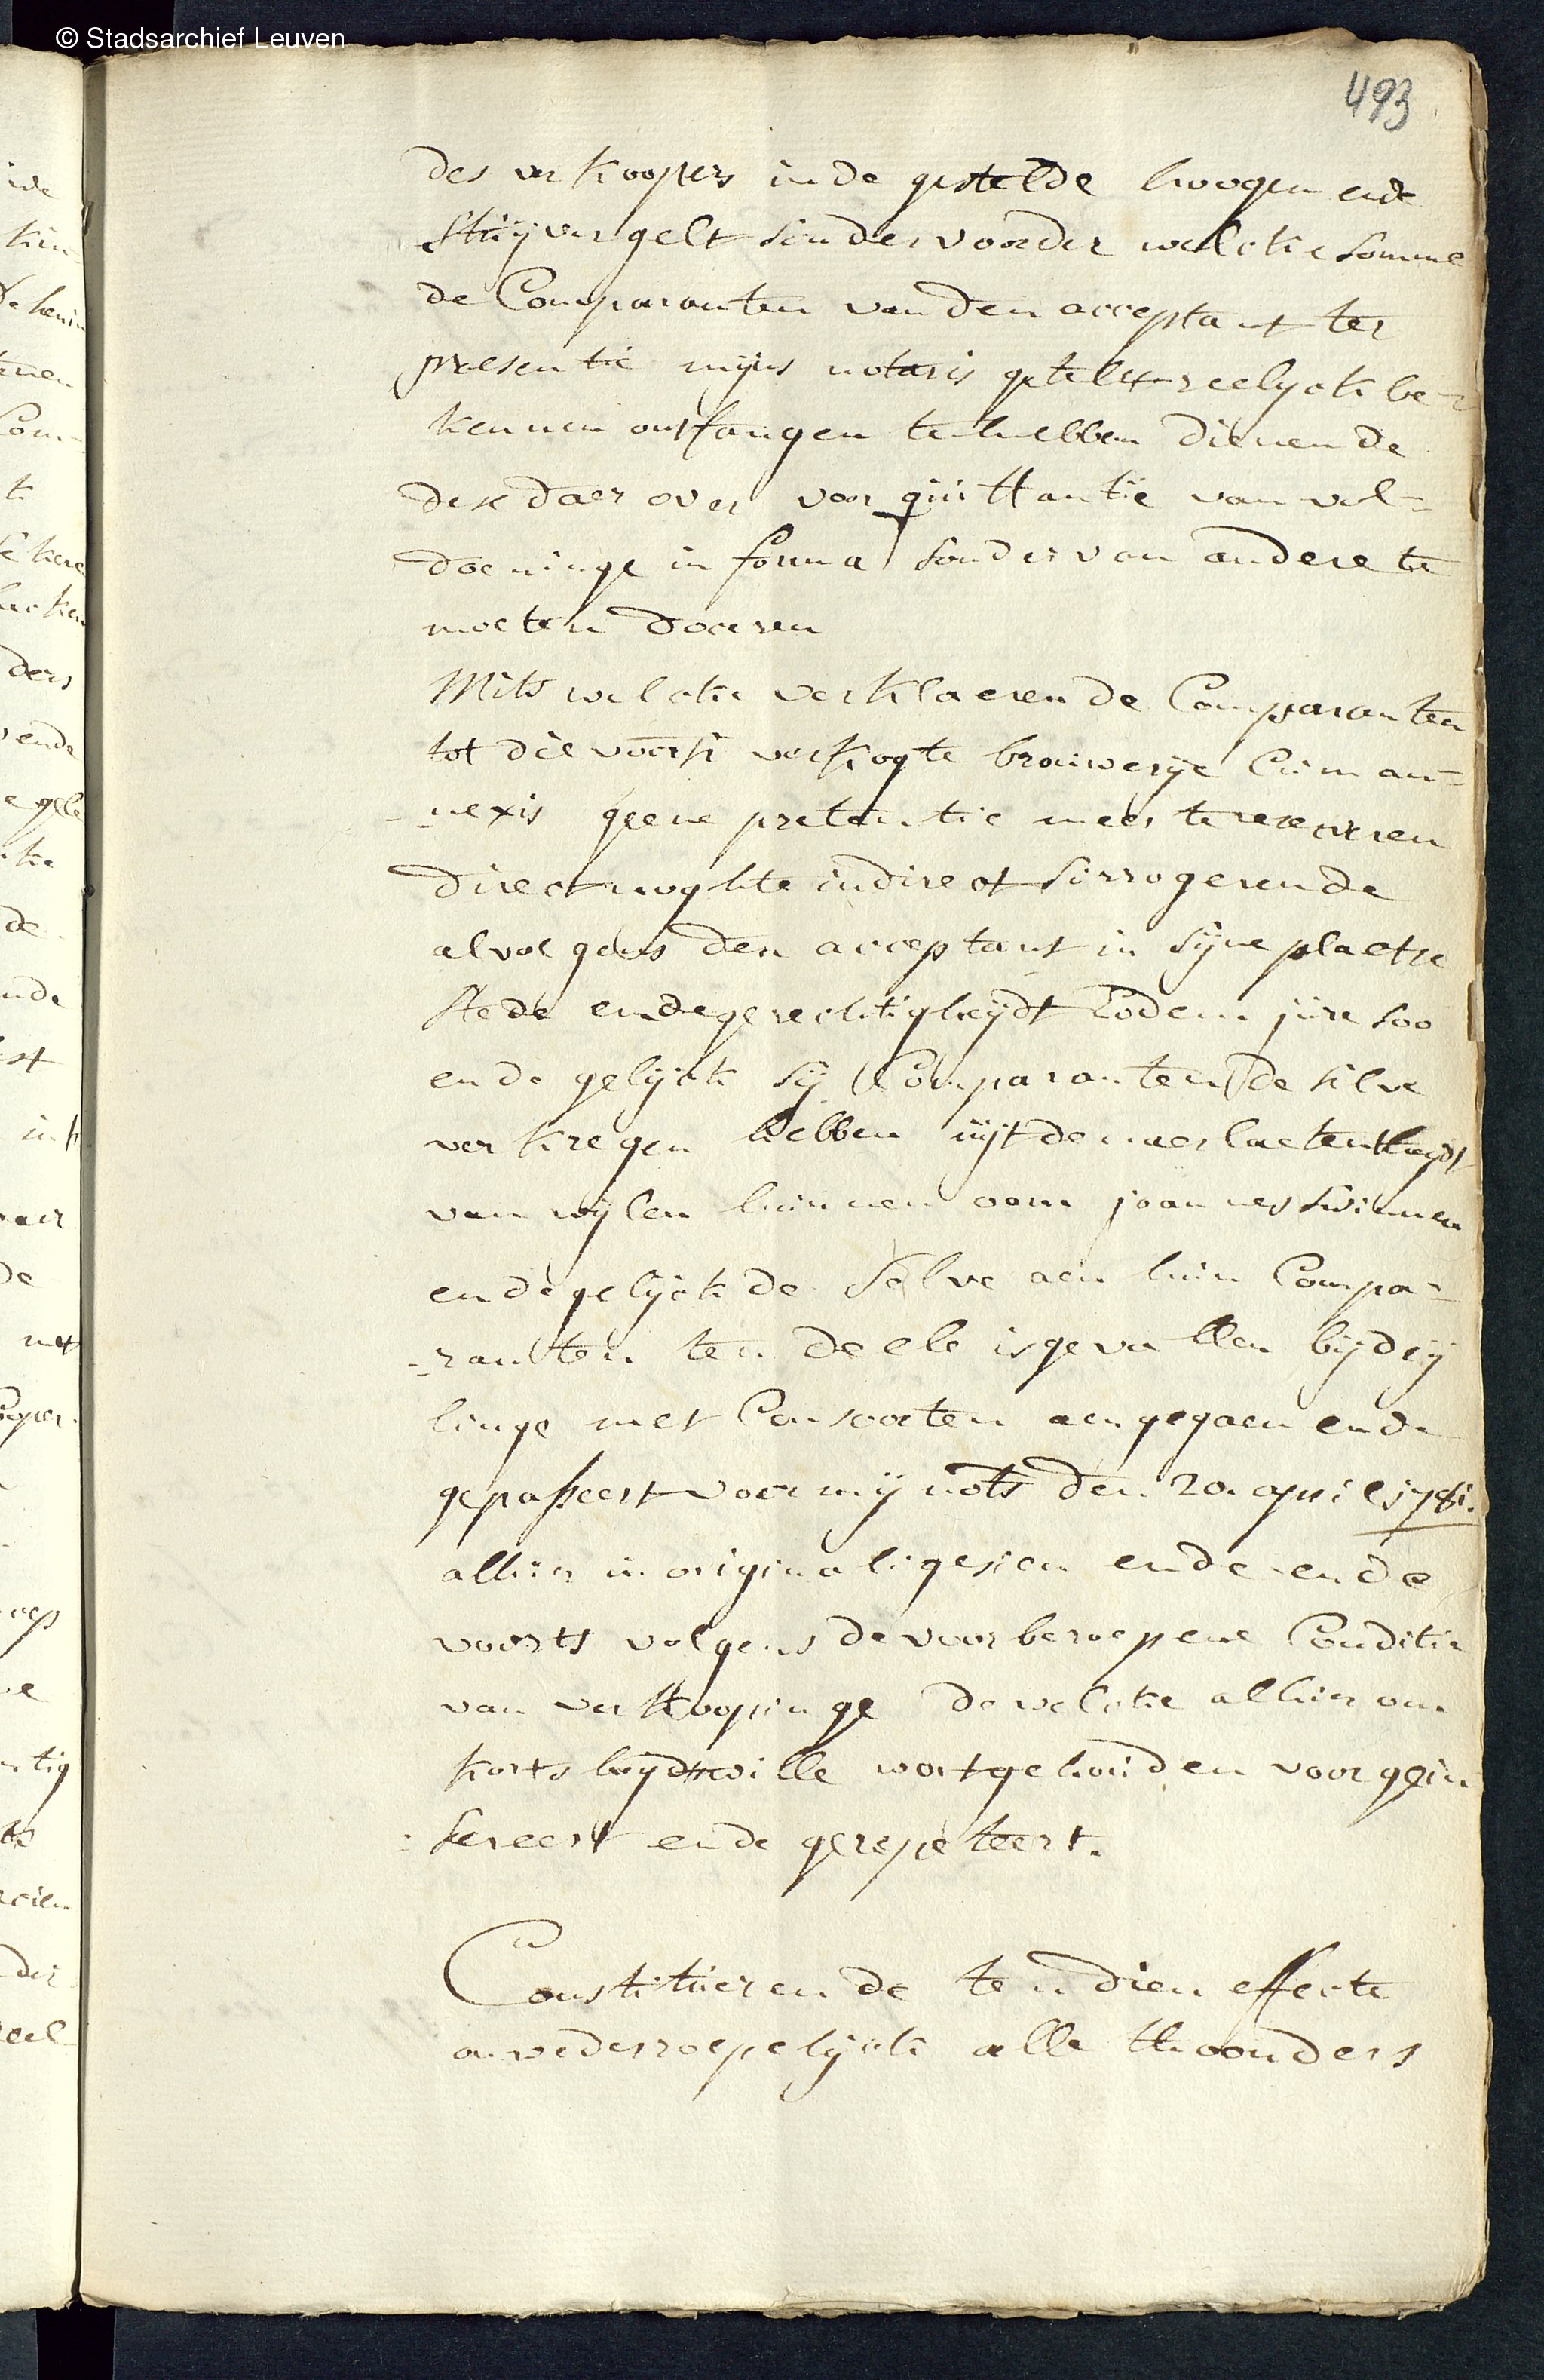 © Stadsarchief Leuven
493
des verkoopers inde gestelde hoogen ende
stuÿvergelt sonder voorder welcke somme
de Comparanten van den acceptant ter
presentie mijns notaris getelt reelyck be-
kennen ontfangen te hebben dienende
dese daer over voor quittantie van vol-
doeninge in forma sonder van andere te
moeten doceren
Mits welcke verklaeren de Comparanten
tot die voors: verkogte brouwerÿe Cum an-
-nexis geene pretentie meer te reserveren
direct nochte indirect surrogerende
alvolgens den acceptant in sÿne plaetse
stede ende gerechtigheÿdt Eodem jure soo
ende gelÿck sÿ Comparanten de selve
verkregen hebben uÿt de naerlaetentheÿdt
van wÿlen hunnen oom joannes swinnen
ende gelÿck de selve aen hun Compa-
-ranten ten deele is gevallen bÿ deÿ
linge met Consoorten aengegaen ende
gepasseert voor mÿ nots den 20. april 1781.
alhier in originali gesien ende ende
voorts volgens de voorberoepene Conditie
van verkoopinge de welcke alhier om
kortsheÿdtswille wort gehouden voor gein
sereert ende gerepeteert.
Constituerende ten dien effecte
onwederroepelÿck alle thoonders